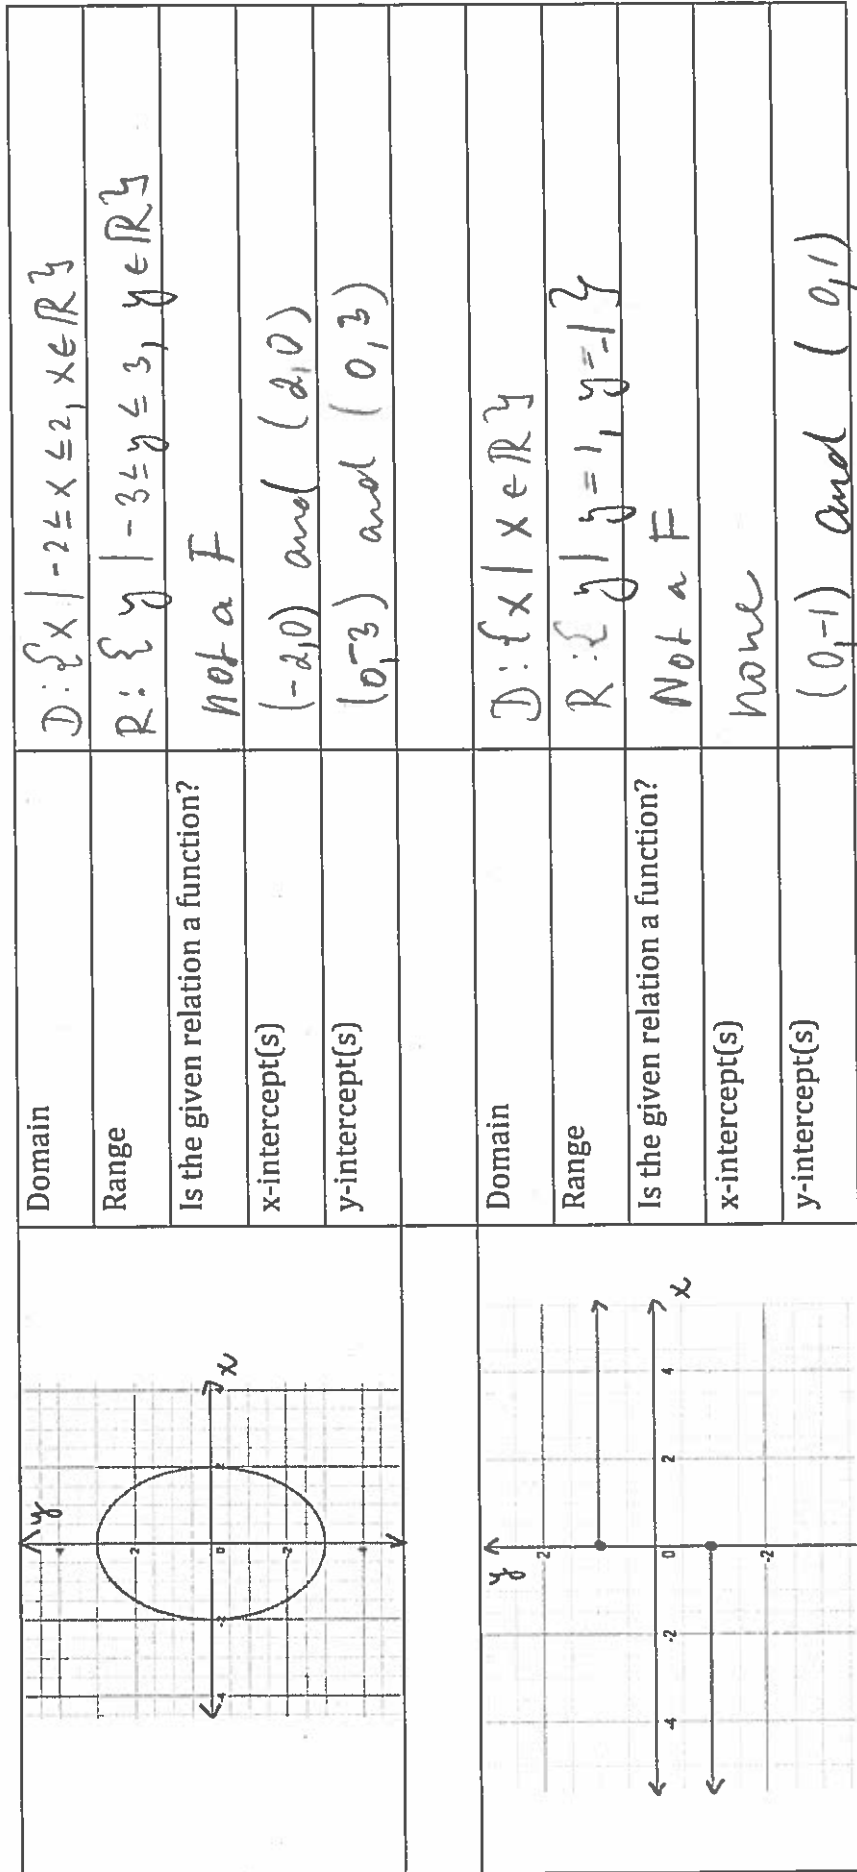 y
x
4
2
0
-2
-4
-4
-2
2
Domain
D:{x | -2≤x≤2, x∈ℝ}
Range
R:{y | -3≤y≤3, y∈ℝ}
Is the given relation a function?
not a F
x-intercept(s)
(-2,0) and (2,0)
y-intercept(s)
(0,-3) and (0,3)
y
x
2
-4
-2
0
2
4
-2
Domain
D:{x | x∈ℝ}
Range
R:{y | y=1, y=-1}
Is the given relation a function?
Not a F
x-intercept(s)
none
y-intercept(s)
(0,-1) and (0,1)